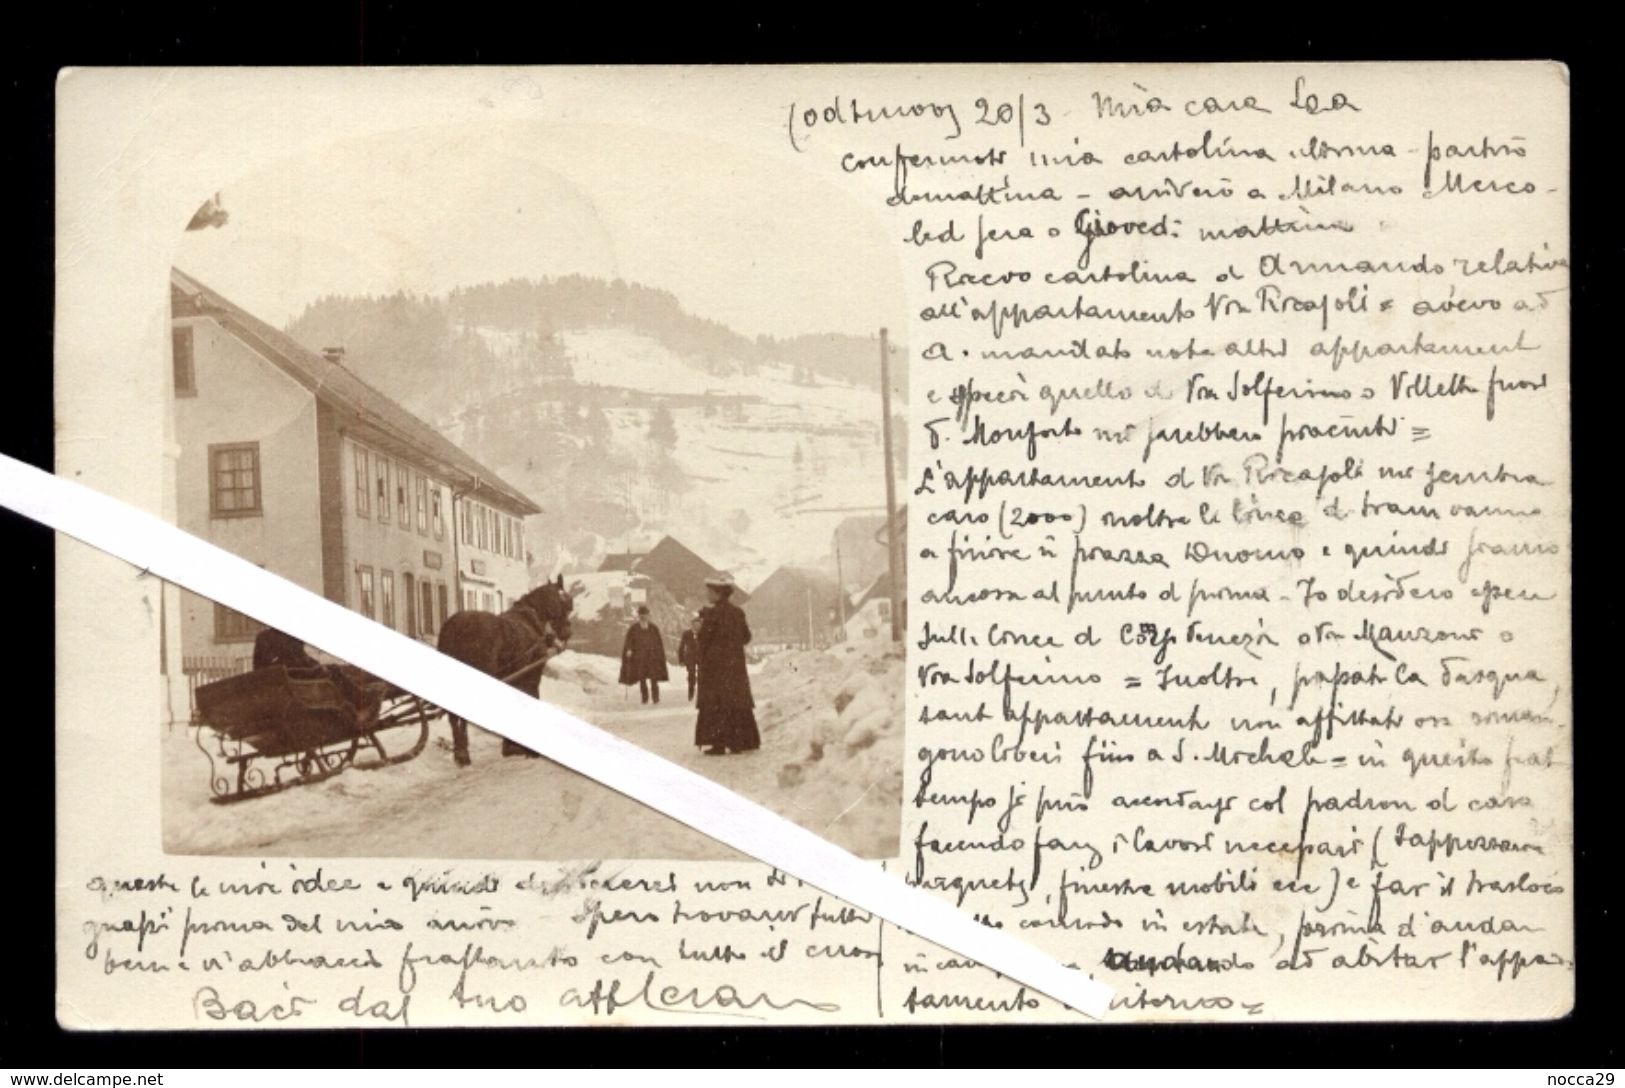 20/3 - Mia cara Lea
mia cartolina ultima - partirò
domattina - arriverò a Milano Merco-
led sera o Giovedi mattina
Ricevo cartolina d Armando relativa
all'appartamento Via Ricasoli = avevo ad
A. mandato note altri appartamenti
e specie quello d Via Solferino o Villetta fuori
P. Monforte mi sarebbero piaciuti =
L'appartamento d Via Ricasoli mi sembra
caro (2000) inoltre le linee d tram vanno
a finire in piazza Duomo e quindi siamo
ancora al punto d prima - Io desidero essere
sulle linee d Corso Venezia o Via Manzoni o
Via Solferino = Inoltre, passata la Pasqua,
tanti appartamenti non affittati ora riman-
gono liberi fino a S. Michele = in questo frat
tempo si può accordarsi col padron d casa
facendo fargli i lavori necessari (Tappezzerie
parquets, finestre mobili ecc) e far il trasloco
comodo in estate, prima d'andar
in ad abitar l'appar-
tamento ritorno =
queste le mie idee e quindi non
prima del mio arrivo - Spero trovarvi tutti
bene e vi abbraccio frattanto con tutto il cuore
Baci dal tuo aff
delcampe.net
nocca29